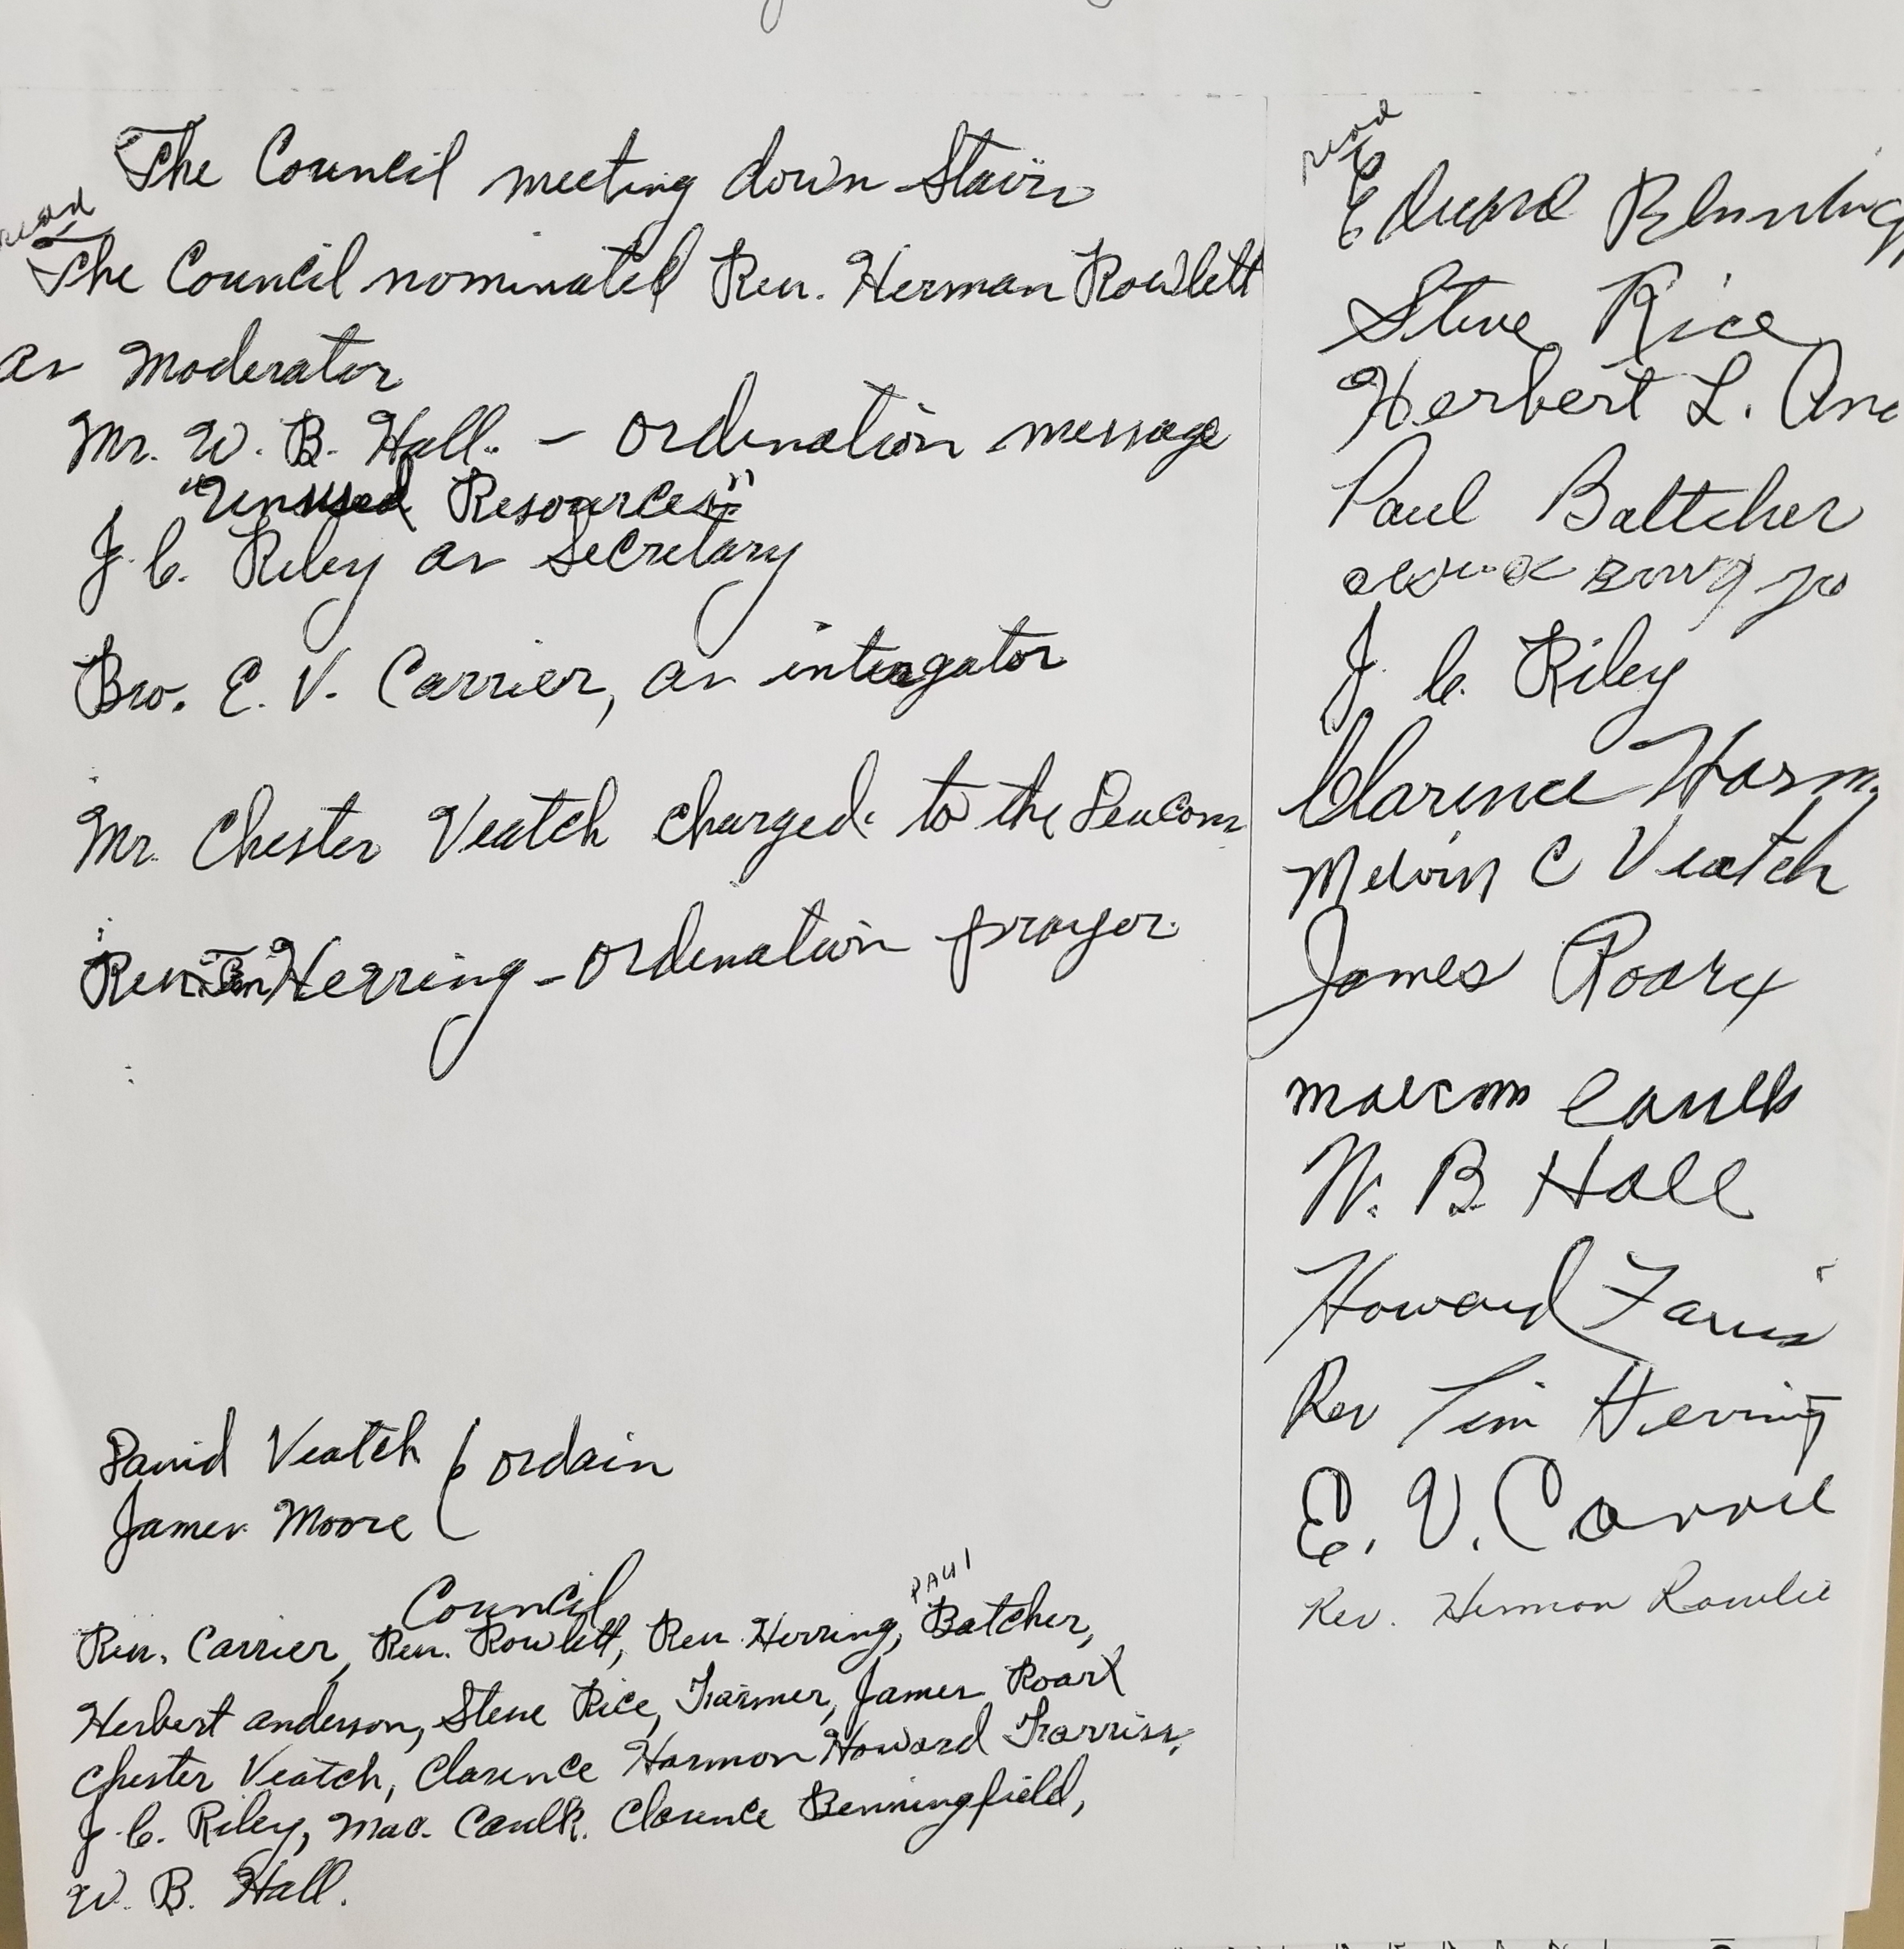 The Council meeting down Stairs
read
The Council nominated Rev. Herman Rowlett
as Moderator
Mr. W. B. Hall. - Ordination message
"Unused Resources"
J. C. Riley as Secretary
Bro. E. V. Carrier, as
Mr. Chester Veatch charged to the
Rev. Tim Herring - Ordination prayer.
David Veatch ( ordain
James Moore
Council
PAUl
Rev. Carrier, Rev. Rowlett, Rev. Herring, Batcher,
Herbert anderson, Steve Rice, Farmer, James Roark
Chester Veatch, Clarence Harmon Howard Farriss,
J. C. Riley, Mac. Caulk. Clarence Benningfield,
W. B. Hall.
read
Edward
Steve Rice
Herbert L. An
Paul Battcher
J. C. Riley
Clarence Harm
Melvin C Veatch
James Roark
W. B Hall
Howard Farris
Rev Tim Herring
E. V. Carrie
Rev. Herman